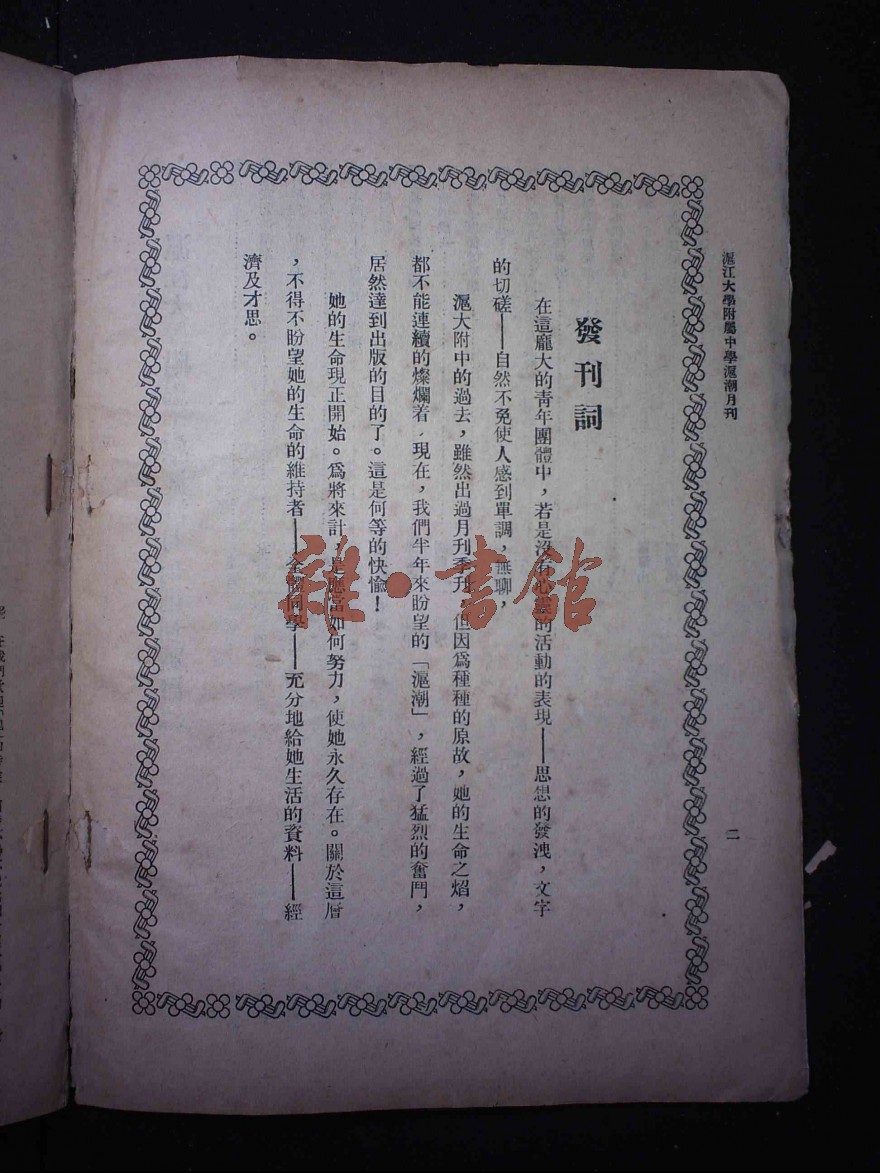 滬江大學附屬中學滬潮月刊
二
發刊詞
在這龐大的青年團體中，若是沒有心靈的活動的表現——思想的發洩，文字
的切磋——自然不免使人感到單調，無聊，
滬大附中的過去，雖然出過月刊季刊，但因爲種種的原故，她的生命之焰，
都不能連續的燦爛着．現在，我們半年來盼望的「滬潮」，經過了猛烈的奮鬥，
居然達到出版的目的了。這是何等的快愉！
她的生命現正開始。爲將來計，是應當如何努力，使她永久存在。關於這層
，不得不盼望她的生命的維持者——全體同學——充分地給她生活的資料——經
濟及才思。
雜·書館